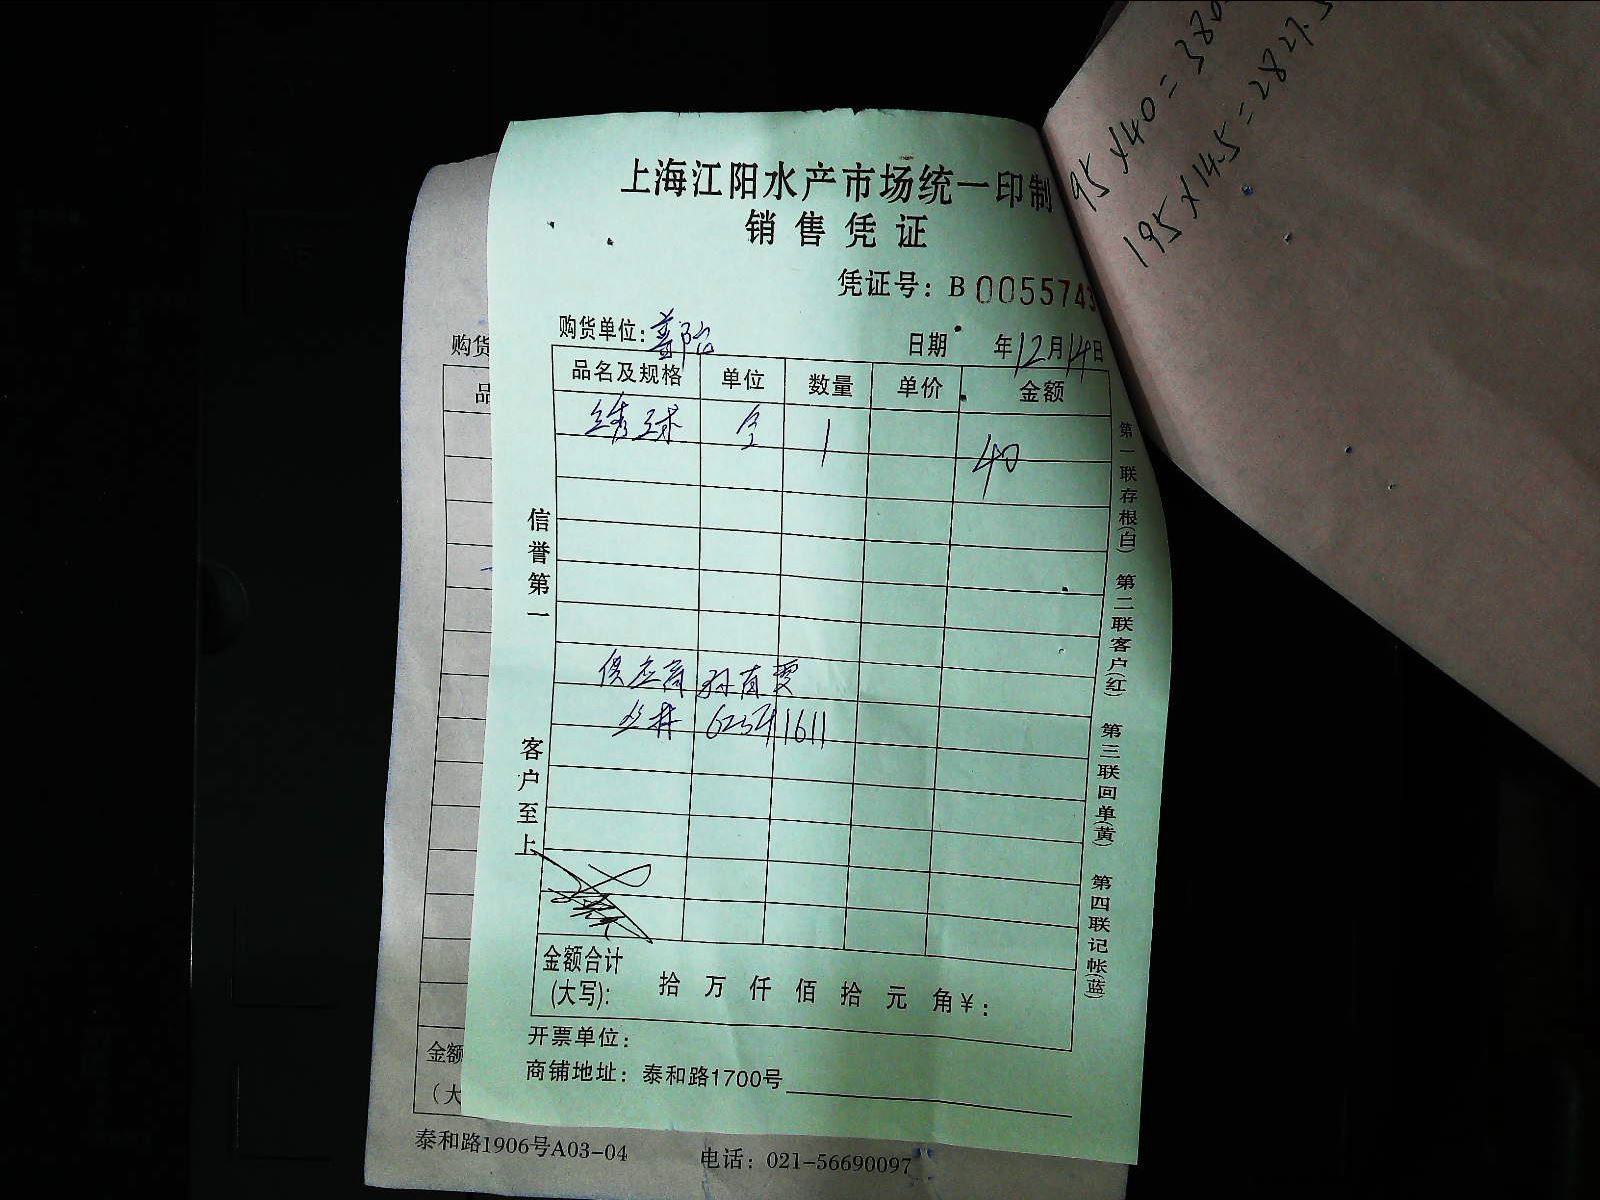 上海江阳水产市场统一印制
销售凭证
凭证号：B 005574
购货单位：普陀
日期 年12月14日
品名及规格 单位 数量 单价 金额
绣球 个 1 40
供应商 孙首雯
信誉第一
客户至上
第一联存根(白) 第二联客户(红) 第三联回单(黄) 第四联记帐(蓝)
金额合计
(大写)： 拾 万 仟 佰 拾 元 角 ¥：
开票单位：
商铺地址：泰和路1700号
购货
品
金额
(大
泰和路1906号A03-04 电话：021-56690097
195×40=380
195×14.5=2827.5